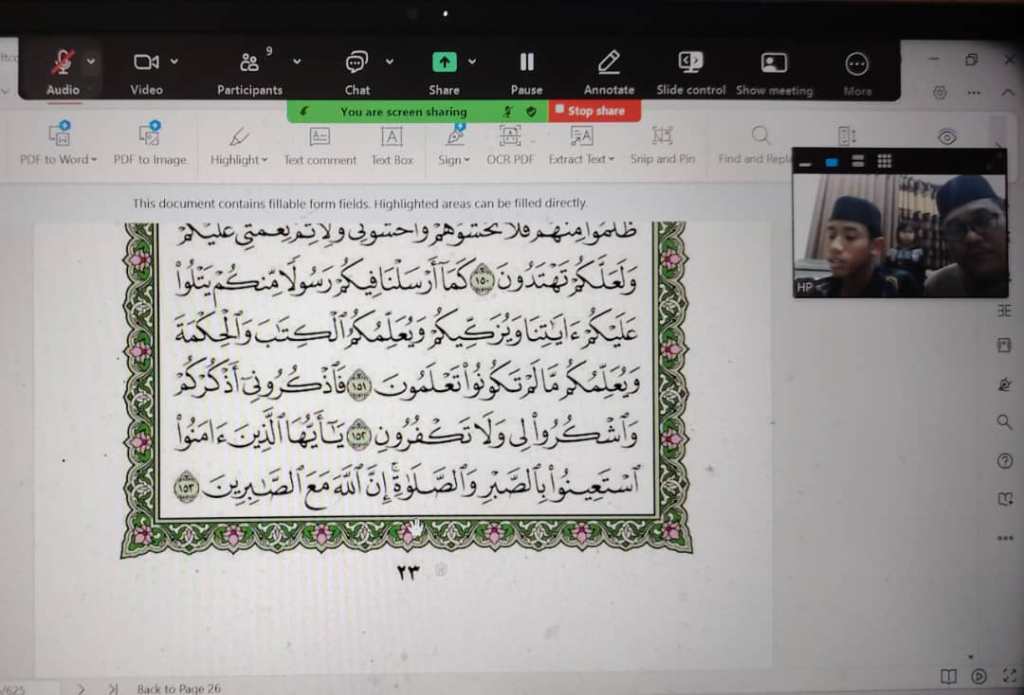 9
Audio Video Participants Chat Share Pause Annotate Slide control Show meeting More
You are screen sharing Stop share
PDF to Word PDF to Image Highlight Text comment Text Box Sign OCR PDF Extract Text Snip and Pin Find and Repla
This document contains fillable form fields. Highlighted areas can be filled directly.
HP
ظَلَمُوا۟ مِنْهُمْ فَلَا تَخْشَوْهُمْ وَٱخْشَوْنِى وَلِأُتِمَّ نِعْمَتِى عَلَيْكُمْ
وَلَعَلَّكُمْ تَهْتَدُونَ ١٥٠ كَمَآ أَرْسَلْنَا فِيكُمْ رَسُولًا مِّنكُمْ يَتْلُوا۟
عَلَيْكُمْ ءَايَٰتِنَا وَيُزَكِّيكُمْ وَيُعَلِّمُكُمُ ٱلْكِتَٰبَ وَٱلْحِكْمَةَ
وَيُعَلِّمُكُم مَّا لَمْ تَكُونُوا۟ تَعْلَمُونَ ١٥١ فَٱذْكُرُونِىٓ أَذْكُرْكُمْ
وَٱشْكُرُوا۟ لِى وَلَا تَكْفُرُونِ ١٥٢ يَٰٓأَيُّهَا ٱلَّذِينَ ءَامَنُوا۟
ٱسْتَعِينُوا۟ بِٱلصَّبْرِ وَٱلصَّلَوٰةِ ۚ إِنَّ ٱللَّهَ مَعَ ٱلصَّٰبِرِينَ ١٥٣
٢٣
/625 Back to Page 26